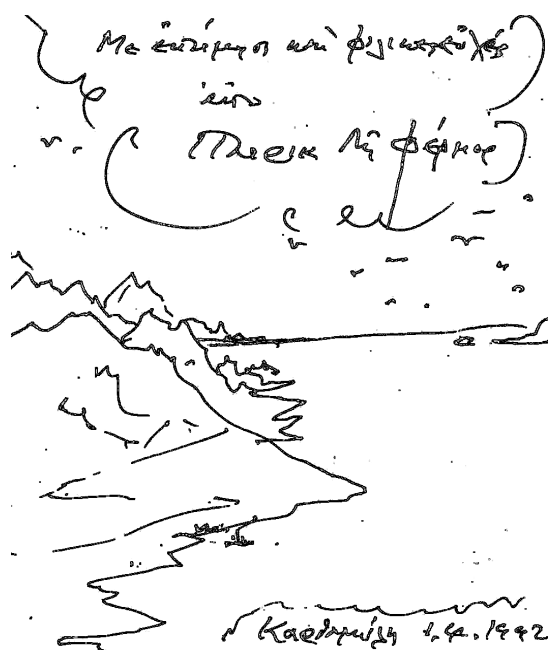 Με ἐκτίμησι καὶ φιλικὲς εὐχές
ἀπὸ
Πάτρικ Λῆ Φέρμορ
Καρδαμύλη 1.4.1992